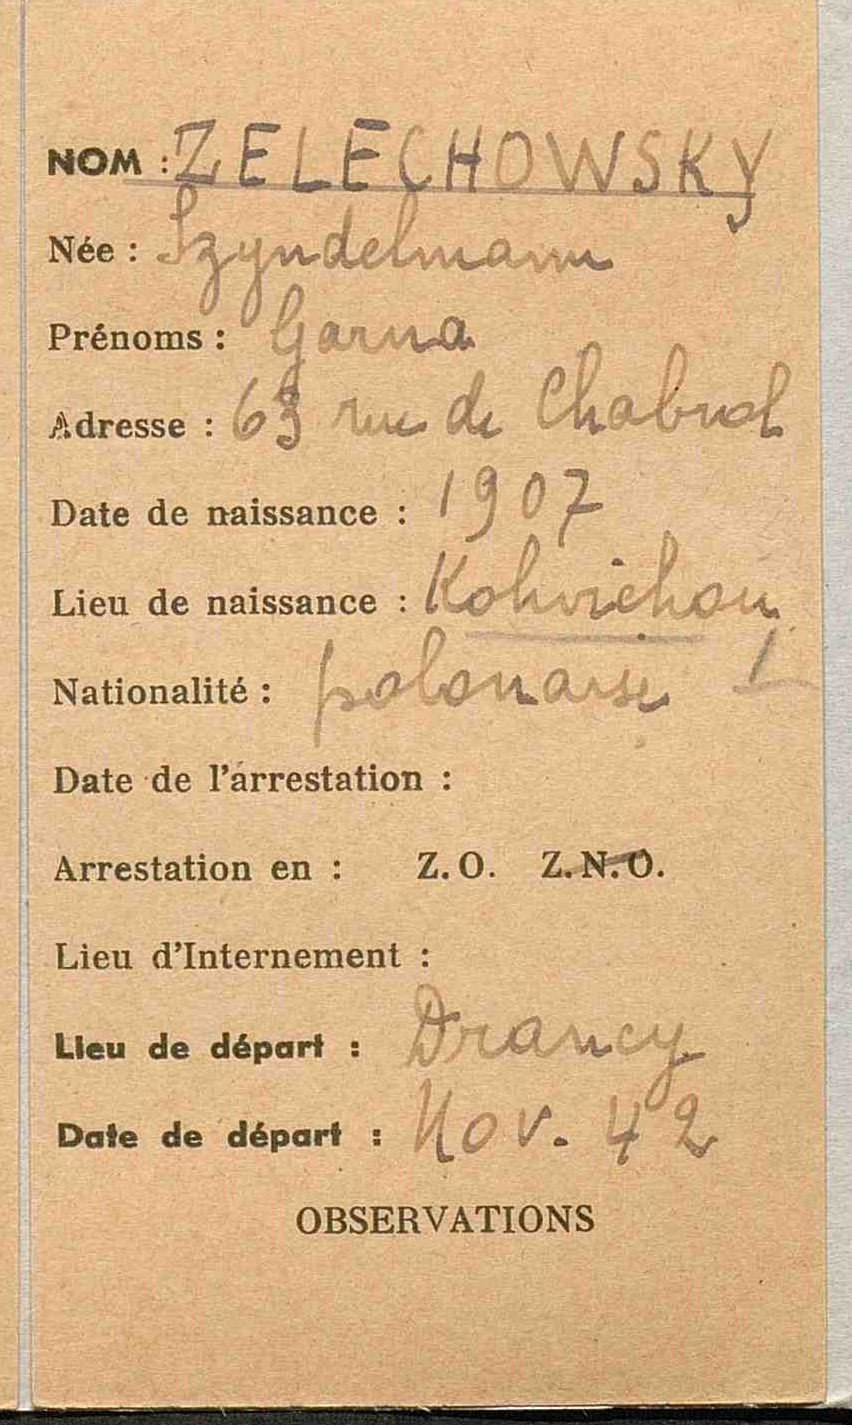 NOM : ZELECHOWSKY
Née : Szyndelmann
Prénoms : Garna
Adresse : 63 rue de Chabrol
Date de naissance : 1907
Lieu de naissance :
Nationalité : polonaise
Date de l'arrestation :
Arrestation en : Z.O. Z.N.O.
Lieu d'Internement :
Lieu de départ : Drancy
Date de départ : Nov. 42
OBSERVATIONS